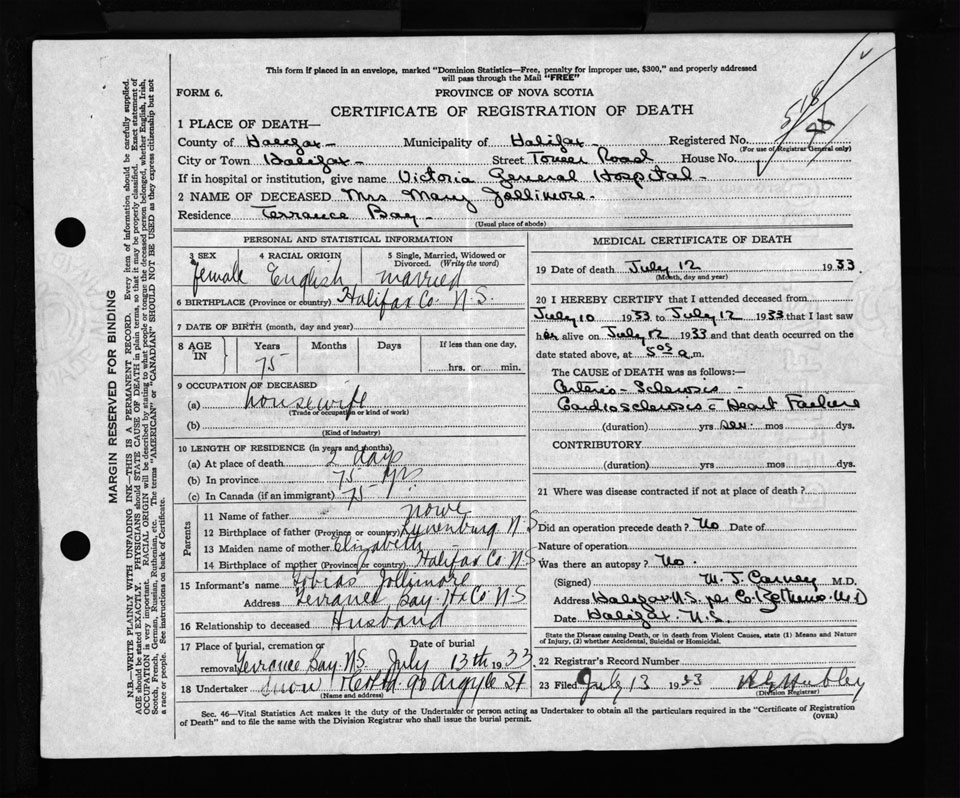 This form if placed in an envelope, marked "Dominion Statistics—Free, penalty for improper use, $300," and properly addressed
will pass through the Mail "FREE"
FORM 6. PROVINCE OF NOVA SCOTIA
CERTIFICATE OF REGISTRATION OF DEATH
1 PLACE OF DEATH—
County of Halifax Municipality of Halifax Registered No.
(For use of Registrar General only)
City or Town Halifax Street Tower Road House No.
If in hospital or institution, give name Victoria General Hospital
2 NAME OF DECEASED Mrs Mary Jollimore
Residence Terrance Bay
(Usual place of abode)
PERSONAL AND STATISTICAL INFORMATION
3 SEX 4 RACIAL ORIGIN 5 Single, Married, Widowed or
Divorced. (Write the word)
female English married
6 BIRTHPLACE (Province or country) Halifax Co. N.S.
7 DATE OF BIRTH (month, day and year)
8 AGE IN Years Months Days If less than one day,
75 hrs. or min.
9 OCCUPATION OF DECEASED
(a) housewife
(Trade or occupation or kind of work)
(b)
(Kind of industry)
10 LENGTH OF RESIDENCE (in years and months)
(a) At place of death 2 days
(b) In province 75 yrs
(c) In Canada (if an immigrant) 75
Parents
11 Name of father nowe
12 Birthplace of father (Province or country) Lunenburg N S
13 Maiden name of mother Elizabeth
14 Birthplace of mother (Province or country) Halifax Co N S
15 Informant's name Tobias Jollimore
Address Terrance Bay Hx Co N S
16 Relationship to deceased Husband
17 Place of burial, cremation or Date of burial
removal Terrance Bay N.S. July 13th 1933
18 Undertaker Snow 90 Argyle St
(Name and address)
MEDICAL CERTIFICATE OF DEATH
19 Date of death July 12 1933
(Month, day and year)
20 I HEREBY CERTIFY that I attended deceased from
July 10 1933 to July 12 1933 that I last saw
her alive on July 12 1933 and that death occurred on
date stated above, at 5 05 a.m.
The CAUSE OF DEATH was as follows:
Arterio-Sclerosis
Cardiosclerosis - Heart Failure
(duration) yrs Sev. mos dys.
CONTRIBUTORY
(duration) yrs mos dys.
21 Where was disease contracted if not at place of death?
Did an operation precede death? No Date of
Nature of operation
Was there an autopsy? No.
(Signed) W. J. Carney M.D.
Address Halifax N.S. per
Date Halifax. N.S.
State the Disease causing Death, or in death from Violent Causes, state (1) Means and Nature
of Injury, (2) whether Accidental, Suicidal or Homicidal.
22 Registrar's Record Number
23 Filed July 13 1933
(Division Registrar)
Sec. 46—Vital Statistics Act makes it the duty of the Undertaker or person acting as Undertaker to obtain all the particulars required in the "Certificate of Registration
of Death" and to file the same with the Division Registrar who shall issue the burial permit.
(OVER)
MARGIN RESERVED FOR BINDING
N.B.—WRITE PLAINLY WITH UNFADING INK—THIS IS A PERMANENT RECORD. Every item of information should be carefully supplied.
AGE should be stated EXACTLY. PHYSICIANS should STATE CAUSE OF DEATH in plain terms, so that it may be properly classified. Exact statement of
OCCUPATION is very important. RACIAL ORIGIN will be described by stating to what people or tongue the deceased person belonged, whether English, Irish,
Scotch, French, German, Russian, Ruthenian, etc. The terms "AMERICAN" or "CANADIAN" SHOULD NOT BE USED as they express citizenship but not
a race or people. See instructions on back of Certificate.